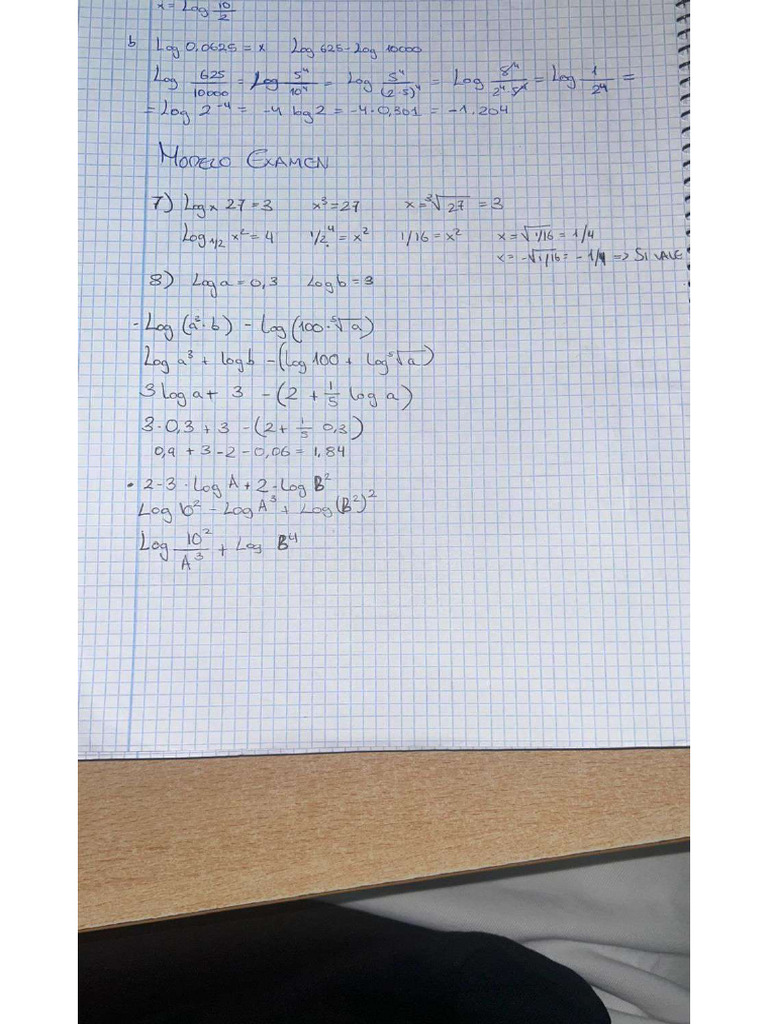 x = Log 10/2
b Log 0,0625 = x Log 625 - Log 10000
Log 625/10000 = Log 5⁴/10⁴ = Log 5⁴/(2·5)⁴ = Log 5⁴/2⁴·5⁴ = Log 1/2⁴ =
= Log 2⁻⁴ = -4 log 2 = -4·0,301 = -1.204
MODELO EXAMEN
7) Logₓ 27 = 3 x³ = 27 x = ³√27 = 3
Log₁/₂ x² = 4 1/2⁴ = x² 1/16 = x² x = √1/16 = 1/4
x = -√1/16 = -1/4 => SI VALE
8) Log a = 0,3 Log b = 3
- Log (a³·b) - Log (100·⁵√a)
Log a³ + log b - (log 100 + log ⁵√a)
3 log a + 3 - (2 + 1/5 log a)
3·0,3 + 3 - (2 + 1/5 0,3)
0,9 + 3 - 2 - 0,06 = 1,84
• 2 - 3·Log A + 2·Log B²
Log b² - Log A³ + Log (B²)²
Log 10²/A³ + Log B⁴